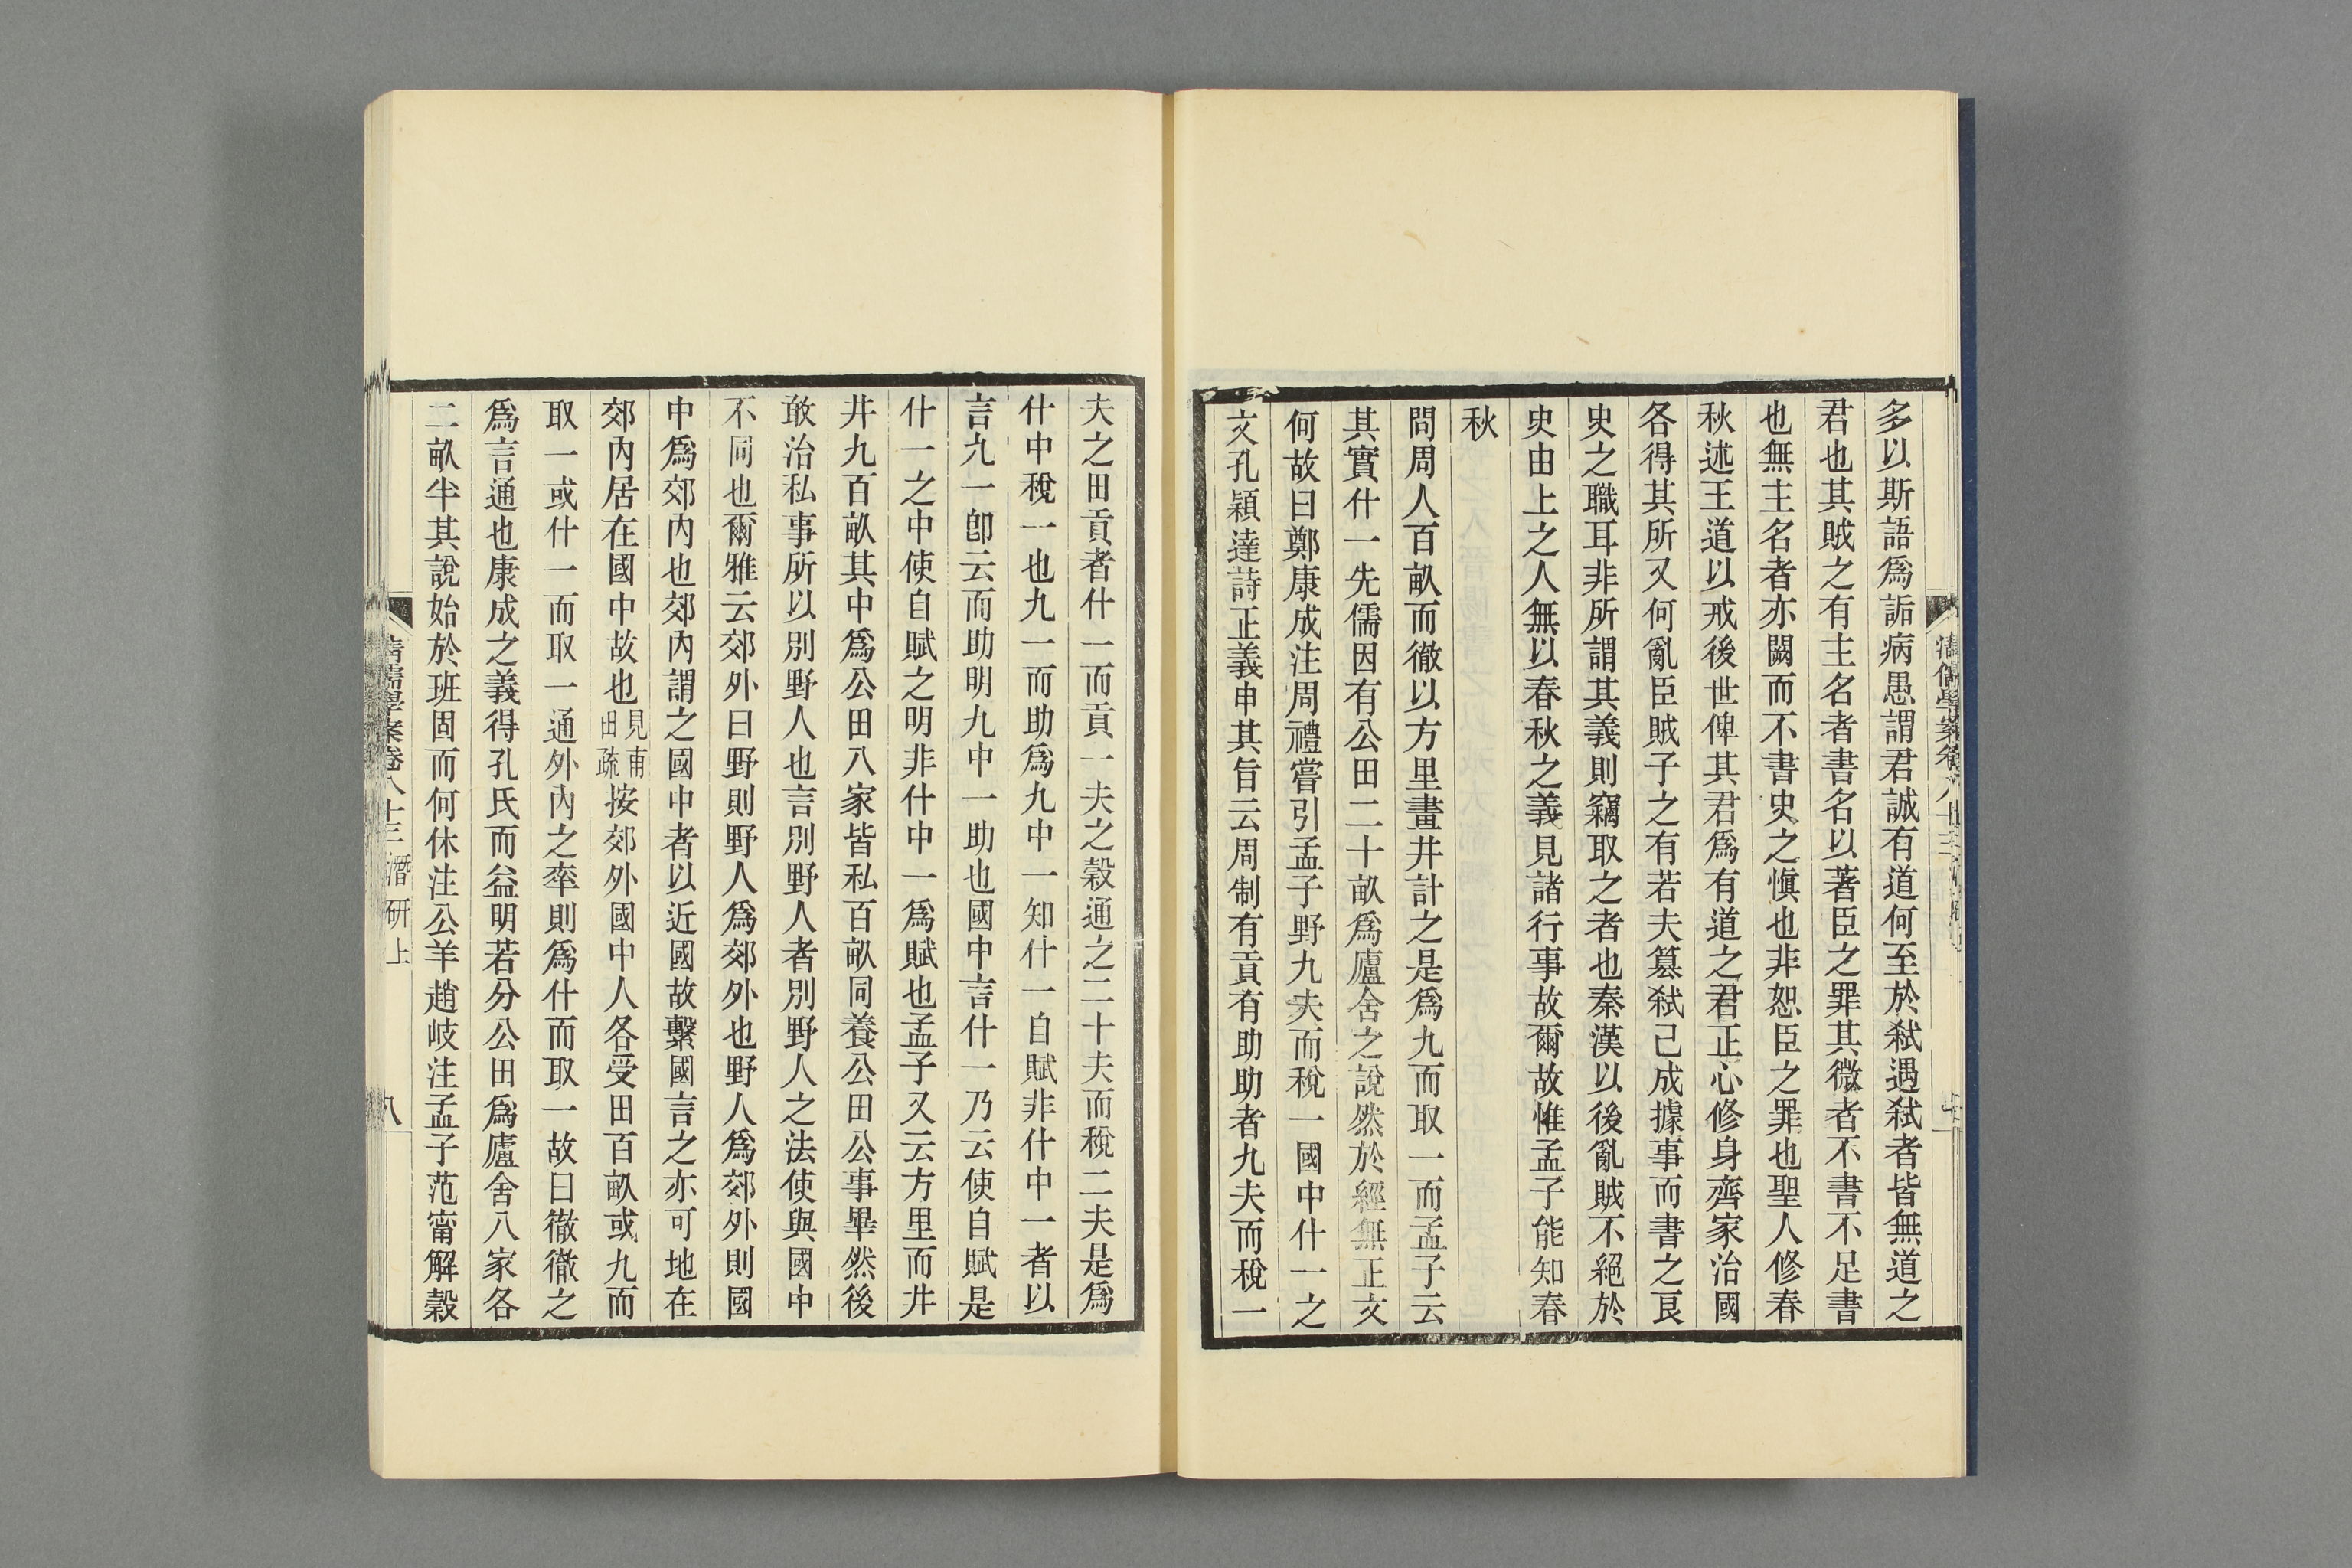 多以斯語爲詬病愚謂君誠有道何至於弑遇弑者皆無道之
君也其賊之有主名者書名以著臣之罪其微者不書不足書
也無主名者亦闕而不書史之愼也非恕臣之罪也聖人修春
秋述王道以戒後世俾其君爲有道之君正心修身齊家治國
各得其所又何亂臣賊子之有若夫篡弑已成據事而書之良
史之職耳非所謂其義則竊取之者也秦漢以後亂賊不絕於
史由上之人無以春秋之義見諸行事故爾故惟孟子能知春
秋
問周人百畝而徹以方里畫井計之是爲九而取一而孟子云
其實什一先儒因有公田二十畝爲廬舍之說然於經無正文
何故曰鄭康成注周禮嘗引孟子野九夫而稅一國中什一之
文孔穎達詩正義申其旨云周制有貢有助助者九夫而稅一
夫之田貢者什一而貢一夫之穀通之二十夫而稅二夫是爲
什中稅一也九一而助爲九中一知什一自賦非什中一者以
言九一卽云而助明九中一助也國中言什一乃云使自賦是
什一之中使自賦之明非什中一爲賦也孟子又云方里而井
井九百畝其中爲公田八家皆私百畝同養公田公事畢然後
敢治私事所以別野人也言別野人者別野人之法使與國中
不同也爾雅云郊外曰野則野人爲郊外也野人爲郊外則國
中爲郊內也郊內謂之國中者以近國故繫國言之亦可地在
郊內居在國中故也見甫田疏按郊外國中人各受田百畝或九而
取一或什一而取一通外內之率則爲什而取一故曰徹徹之
爲言通也康成之義得孔氏而益明若分公田爲廬舍八家各
二畝半其說始於班固而何休注公羊趙岐注孟子范甯解穀
清儒學案卷八十三 潛研上
八